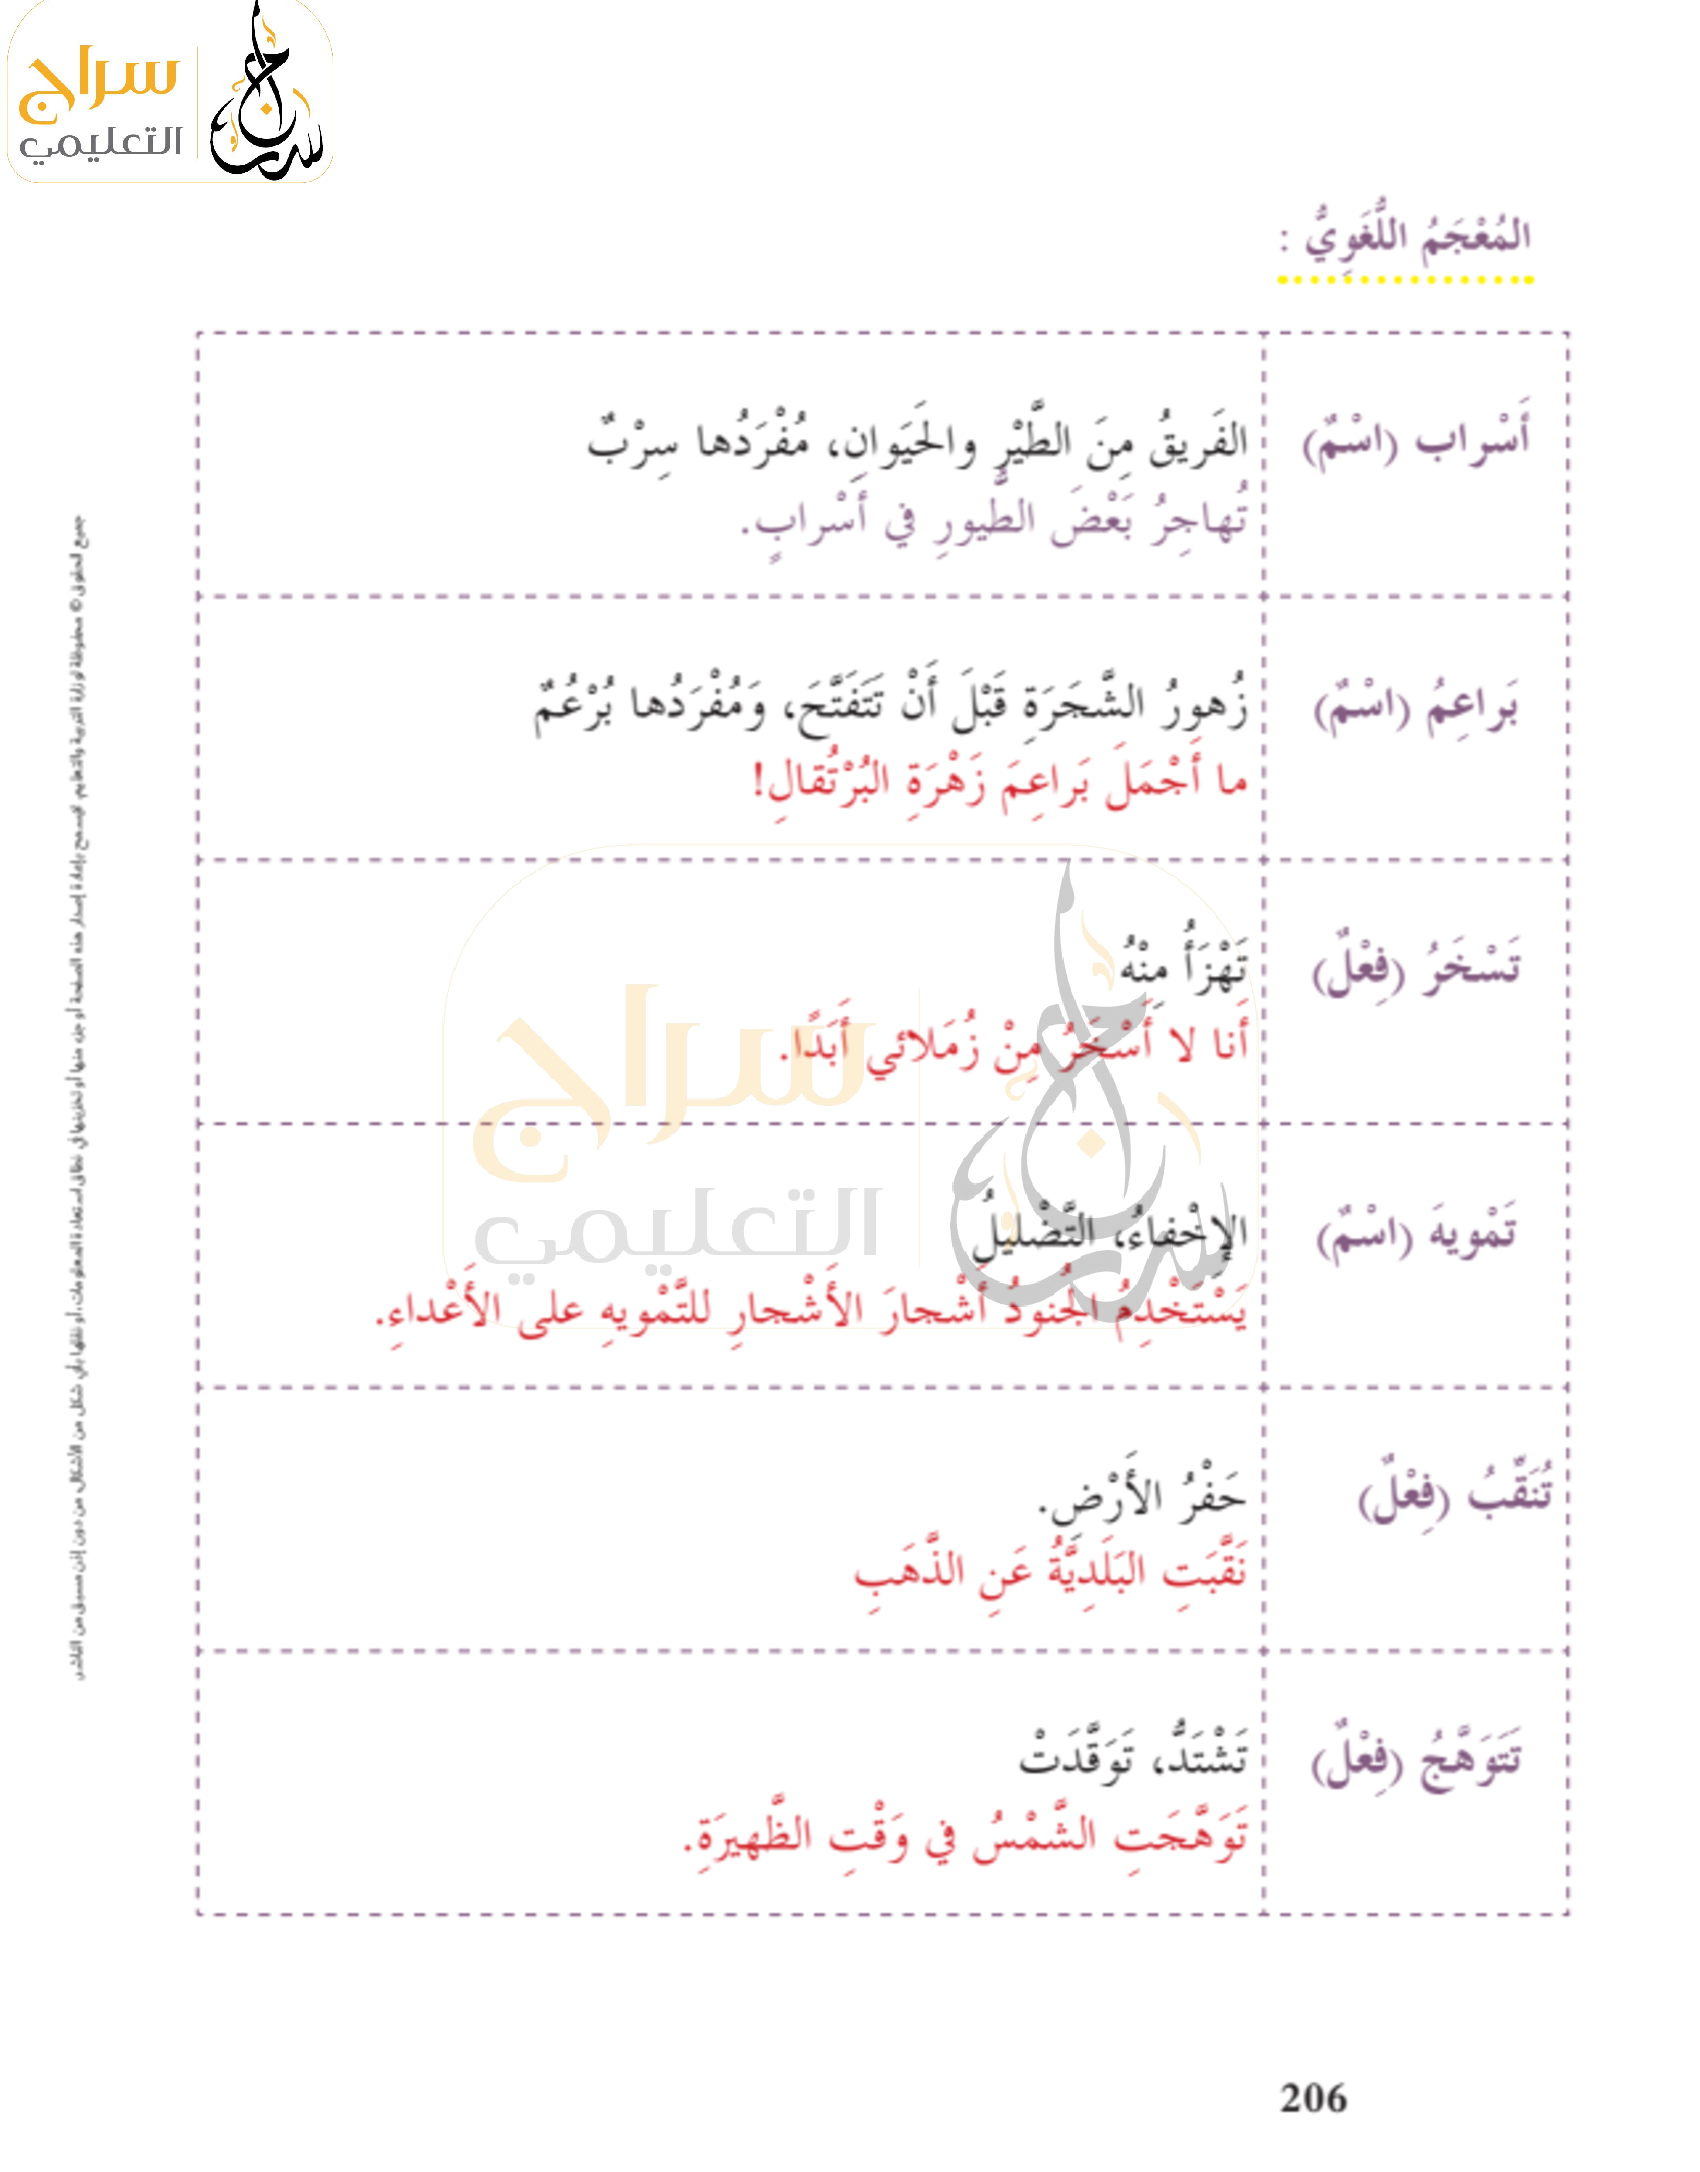 سراج
التعليمي
المُعْجَمُ اللُّغَوِيُّ :
أَسْراب (اسْمٌ)
الفَريقُ مِنَ الطَّيْرِ والحَيَوانِ، مُفْرَدُها سِرْبٌ
تُهاجِرُ بَعْضَ الطُّيورِ في أَسْرابٍ.
بَراعِمُ (اسْمٌ)
زُهورُ الشَّجَرَةِ قَبْلَ أَنْ تَتَفَتَّحَ، وَمُفْرَدُها بُرْعُمٌ
ما أَجْمَلَ بَراعِمَ زَهْرَةِ البُرْتُقالِ!
تَسْخَرُ (فِعْلٌ)
تَهْزَأُ مِنْهُ
أَنا لا أَسْخَرُ مِنْ زُمَلائي أَبَدًا.
تَمْويهَ (اسْمٌ)
الإِخْفاءُ، التَّضْليلُ
يَسْتَخْدِمُ الجُنودُ أَشْجارَ الأَشْجارِ للتَّمْويهِ على الأَعْداءِ.
تُنَقِّبُ (فِعْلٌ)
حَفْرُ الأَرْضِ.
نَقَّبَتِ البَلَدِيَّةُ عَنِ الذَّهَبِ
تَتَوَهَّجُ (فِعْلٌ)
تَشْتَدُّ، تَوَقَّدَتْ
تَوَهَّجَتِ الشَّمْسُ في وَقْتِ الظَّهيرَةِ.
جميع الحقوق © محفوظة لوزارة التربية والتعليم. لايسمح بإعادة إصدار هذه الصفحة أو جزء منها أو تخزينها في نطاق استعادة المعلومات، أو نقلها بأي شكل من الأشكال من دون إذن مسبق من الناشر
سراج
التعليمي
206